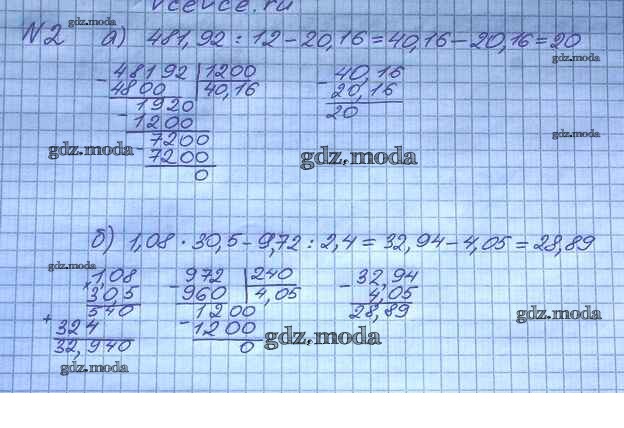 vcevce.ru
gdz.moda
N2 а) 481,92 : 12 - 20,16 = 40,16 - 20,16 = 20
- 48192 | 1200 - 40,16
4800 | 40,16 20,16
- 1920 20
1200
gdz.moda - 7200 gdz.moda gdz.moda
7200
0
б) 1,08 · 30,5 - 9,72 : 2,4 = 32,94 - 4,05 = 28,89
gdz.moda
× 1,08 - 972 | 240 - 32,94
30,5 960 | 4,05 4,05
540 1200 28,89
+ 324 - 1200 gdz.moda gdz.moda
32,940 0
gdz.moda